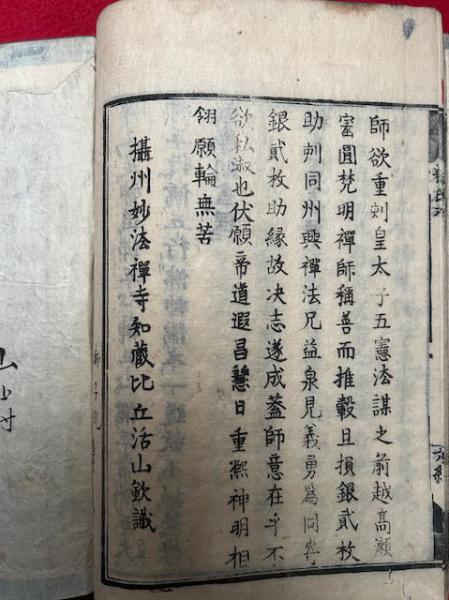 師欲重刻皇太子五憲法謀之前越高瀨
室圓梵明禪師稱善而推轂且損銀貳枚
助刺同州興禪法兄益泉見義勇爲同寄
銀貳枚助緣故决志遂成蓋師意在乎不
欲私淑也伏願帝道遐昌慧日重熈神明相
翎願輪無苦
攝州妙法禪寺知藏比丘活山欽識